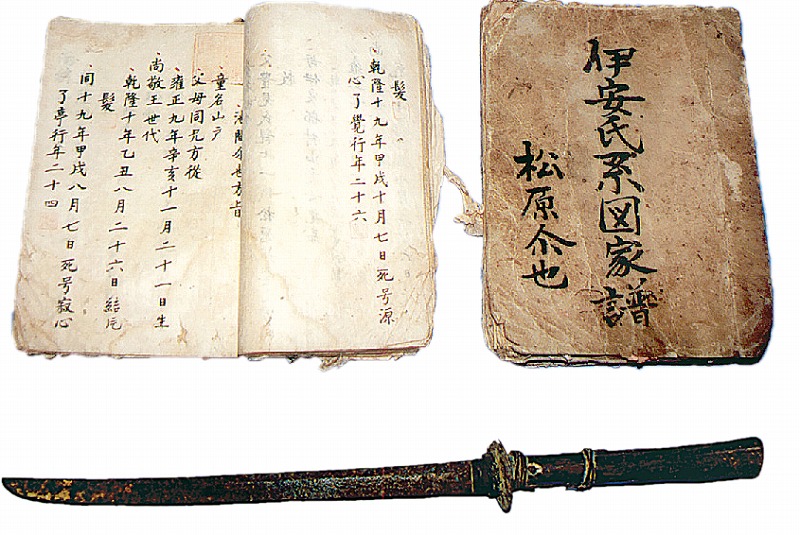 髪
、乾隆十九年甲戌十月七日死号源
心了覺行年二十六
、童名山戸
父母同兄方從
、雍正九年辛亥十一月二十一日生
尚敬王世代
、乾隆十年乙丑八月二十六日結片
髪
、同十九年甲戌八月七日死号寂心
了亭行年二十四
伊安氏系図家譜
松原尒也